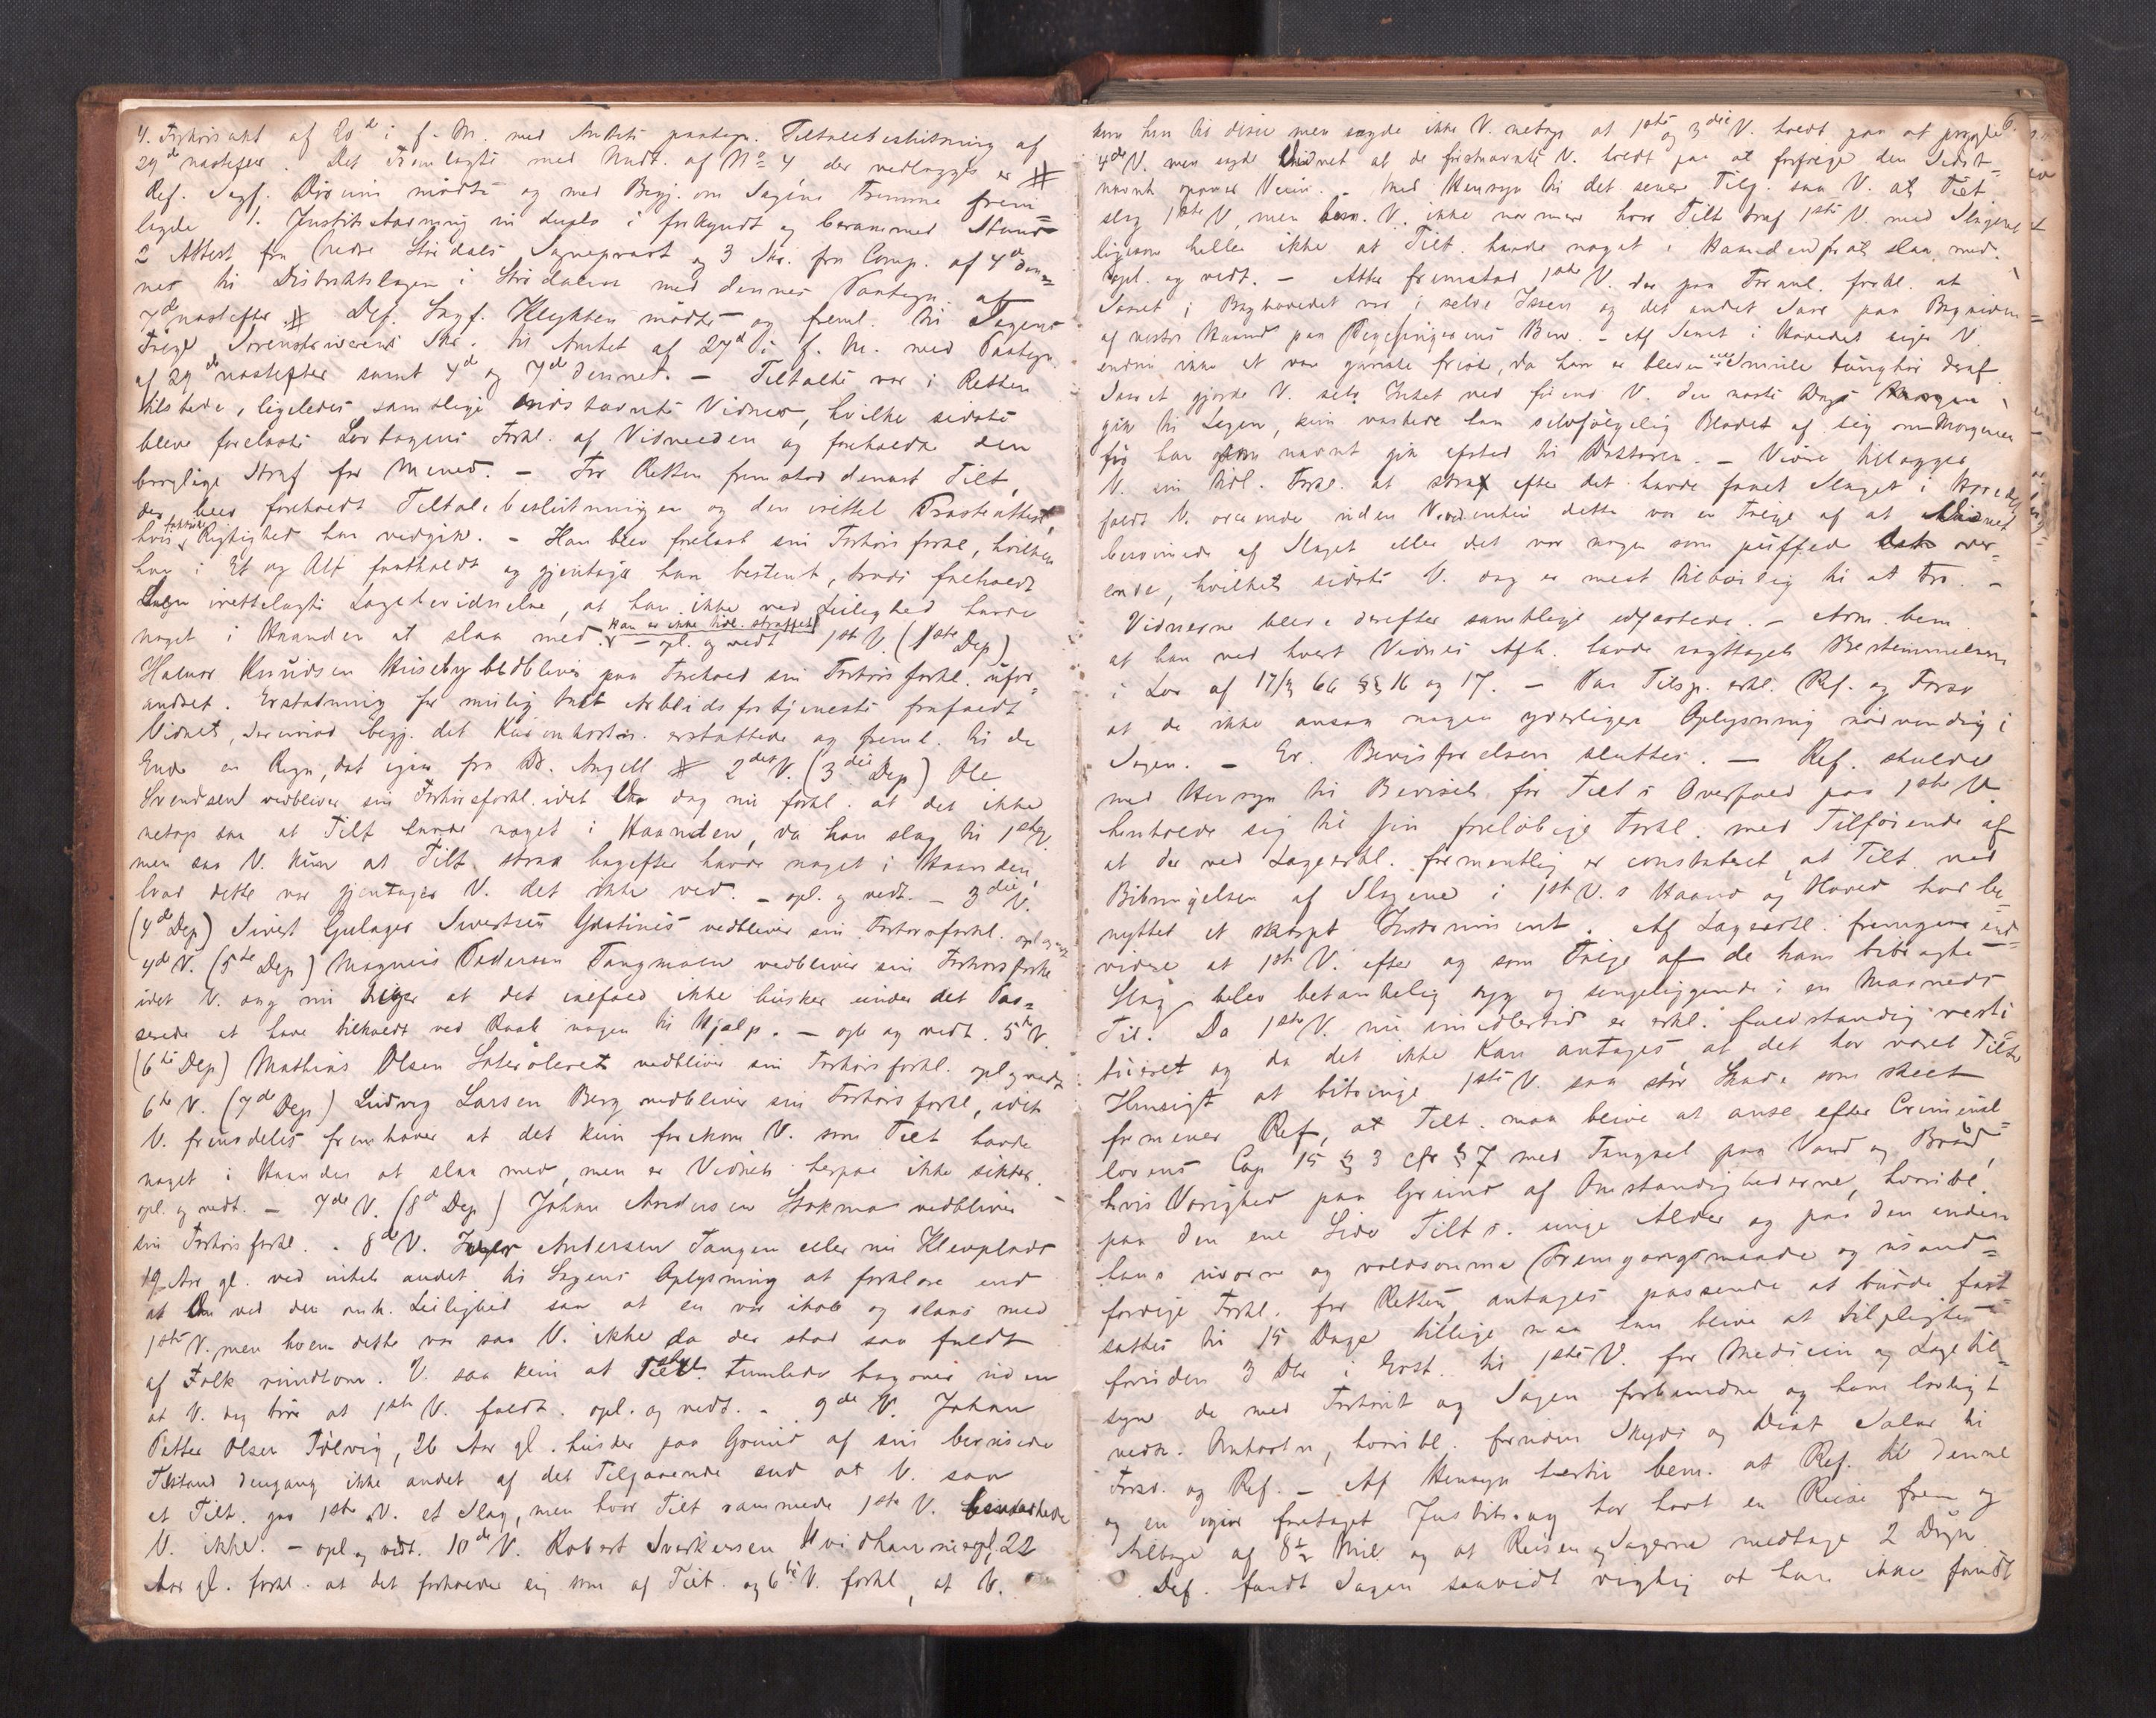 4. Forhörsakt af 20de i f. M. med Amtets paategn. Tiltalebeslutning af
29de næstefter. Det Fremlagte med Undt. af No 4, der vedlægges er #
Ref. Sagf. mödte og med Begj. om Sagens Fremme frem=
lagde 1. Justitsstævning in duplo i forkyndt og berammed Stand
2 Attest fra Nedre Stördals Sogneprest og 3 Skr. fra Comp. af 4de den=
nes til Distriktslægen i Stördalen med dennes Paategn. af
7de næstefter # Def. Sagf. Klykken mödte og freml. til Sagens
Fölge Sorenskriverens Skr. til Amtet af 27de i f. M. med Paategn
af 29de næstefter samt 4de og 7de dennes. – Tiltalte var i Retten
tilstede, ligeledes samtlige indstævnte Vidner, hvilke sidste
bleve forelæste Lovbogens Forkl. af Vidneeden og foreholdte den
borglige Straf for Meened. – For Retten fremstod dernæst Tilt,
der blev foreholdt Tiltalebeslutningen og den irettel Præsteattest,
hvis faktiske Rigtighed han vedgik. – Han blev forelæst sin Forhörsforkl, hvilken
han i Et og Alt fastholdt og gjentager han bestemt, trods foreholdt
irettelagte Lægebevidnelse, at han ikke ved Leilighed havde
noget i Haanden at slaa med. Han er ikke tidl. straffet – opl. og vedt 1ste V. (1ste Dep)
Halvor Knudsen Huseby vedbliver paa Forehold sin Forhörsforkl. ufor=
andret. Erstatning for mulig tabt Arbeidsfortjeneste frafaldt
Vidnet, derimod begj. det Kuromkostn. erstattede og freml. til de
Ende en Regn, dat igaar fra Dr. Angell # 2det V. (3die Dep) Ole
Svendsen vedbliver sin Forhörsforkl. idet Vn dog nu forkl. at det ikke
netop saa at Tilt havde noget i Haanden, da han slog til 1ste V.
men saa V. kun at Tilt. strax bagefter havde noget i Haanden,
hvad dette var gjentager V. det ikke ved. – opl. og vedt. – 3die V.
(4de Dep) Sivert Gulager Sivertsen vedbliver sin Forhörsforkl. opl og vedt
4de V. (5te Dep) Magnus Pedersen Tangmoen vedbliver sin Forhörsforkl
idet V. dog nu siger at det ialfald ikke husker under det Pas=
serede at have tilkaldt ved Raab nogen til Hjælp. – opl og vedt. 5te V.
(6te Dep) Mathias Olsen vedbliver sin Forhörsforkl. opl og vedt
6te V. (7de Dep) Ludvig Larsen Berg vedbliver sin Forhörsforkl, idet
V. fremdeles fremhæver at det kun forekom V. som Tilt havde
noget i Haanden at slaa med, men er Vidnet herpaa ikke sikker.
opl. og vedt. – 7de V. (8de Dep) Johan Andersen Stokmo vedbliver
sin Forhörsforkl. – 8de V. Andersen Tangen eller nu Klevplads
19 Aar gl. ved intet andet til Sagens Oplysning at forklare end
at Vn ved den omh. Leilighed saa at en var ihob og sloges med
1ste V. men hvem dette var saa V. ikke da der stod saa fuldt
af Folk rundtom. V. saa kun at tumlede bagover uden
at V. dog tror at 1ste V. faldt. opl. og vedt. – 9de V. Johan
Petter Olsen Tölvig, 26 Aar gl. husker paa Grund af sin berusede
Tilstand dengang ikke andet af det Tilgaaende end at V. saa
at Tilt. gav 1ste V. et Slag, men hvor Tilt rammede 1ste V. bemærkede
V. ikke. – opl og vedt. 10de V. Robert Sverkersen 22
Aar gl. forkl. at det forholder sig som af Tilt. og 6te V. forkl, at V.
6.
kom hen til disse men sagde ikke V. netop at 1ste og 3die V. holdt paa at prygle
4de V. men sagde Vidnet at de förstnævnte V. holdt paa at forfölge den sidst=
nævnte opover Veien. – Med Hensyn til det senere Tilg. saa V. at Tilt
slog 1ste V, men bem. V. ikke nærmere hvor Tilt traf 1ste V. med Slagene
ligesom heller ikke at Tilt. havde noget i Haanden for at slaa med.
opl. og vedt. – Atter fremstod 1ste V. der paa Foranl. forkl. at
Saaret i Baghovedet var i selve Issen og det andet Saar paa Bagsiden
af venstre Haand paa Pegefingerens Ben. – Af Saaret i Hovedet siger V.
endnu ikke at være ganske frisk, da han er bleven en Smule tunghör deraf
Saaret gjorde V. selv Intet ved förend V. den næste Dags Morgen
gik til Lægen, kun vaskede han selvfölgelig Blodet af sig om Morgenen
för han som nævnt gik afsted til Doktoren. – Videre tillægger
V. sin tidl. Forkl. at strax efter det havde faaet Slaget i Hovedet
faldt V. overende uden V. ved enten dette var en Fölge af at Vidnet
besvimede af Slaget eller det var nogen som puffede det over=
ende, hvilket sidste V. dog er mest tilböielig til at tro. –
Vidnerne bleve derefter samtlige udfæstede. – Adm. bem
at han ved hvert Vidnes Afh. havde iagttaget Bestemmelsen
i Lov af 17/3 66 §§ 16 og 17. – Paa Tilsp. erkl. Ref. og Forsv
at de ikke ansaa nogen yderligere Oplysning nödvendig i
Sagen. – Er. Bevisförelsen sluttes. – Ref. skulde
med Hensyn til Beviset for Tilt s Overfald paa 1ste V.
henholde sig til sin foreløbige Forkl. med Tilföiende af
at der ved Lægeerkl. formentlig er constateret, at Tilt. ved
Bibringelsen af Slagene i 1ste V. s Haand og Hoved har be=
nyttet et skarpt Instrument. Af Lægeerkl. fremgaar end=
videre at 1ste V. efter og som Fölge af de ham bibragte
Slag blev betænkelig syg og sengeliggende i en Maaneds
Tid. Da 1ste V. nu imidlertid er erkl. fuldstændig resti
tueret og da det ikke kan antages at det har været Tilts
Hensigt at bibringe 1ste V. saa stor Skade som skeet
formener Ref, at Tilt. maa blive at anse efter Criminal=
lovens Cap 15 § 3 cfr § 7 med Fængsel paa Vand og Bröd,
hvis Varighed paa Grund af Omstændighederne, hvoribl.
paa den ene Side Tilts. unge Alder og paa den anden
hans og voldsomme Fremgangsmaade og usand=
færdige Forkl. for Retten, antages passende at burde fast
sættes til 15 Dage tillige maa han blive at tilpligtes
foruden 3 Dlr i Erst. til 1ste V. for Medicin og Lægetil=
syn de med Forhöret og Sagen forbundne og ham lovligt
vedk. Omkostn, hvoribl. foruden Skyds og Diæt Salær til
Forsv. og Ref. – Af Hensyn hertil bem. at Ref. til denne
og en igaar foretaget Justitss. har havt en Reise frem og
tilbage af 8½ Mil og at Reisen og Sagerne medtage 2 Dögn
Def. fandt Sagen saavidt vigtig at han ikke fandt